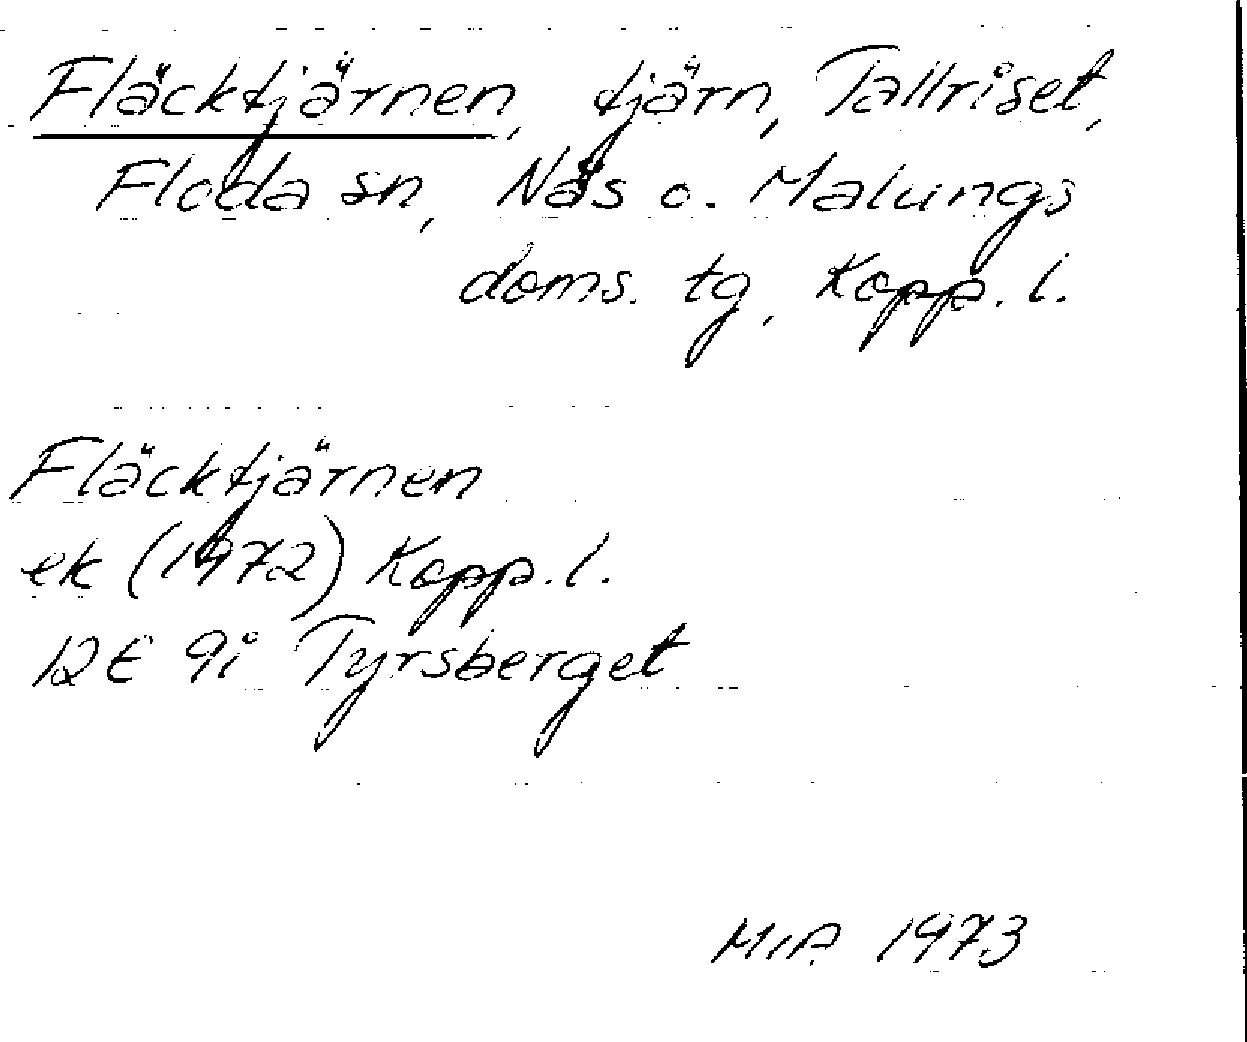 Fläcktjärnen, tjärn, Tallriset,
Floda sn, Nås o. Malungs
doms. tg, Kopp. l.
Fläcktjärnen
ek (1972) Kopp. l.
12E 9i Tyrsberget
1973